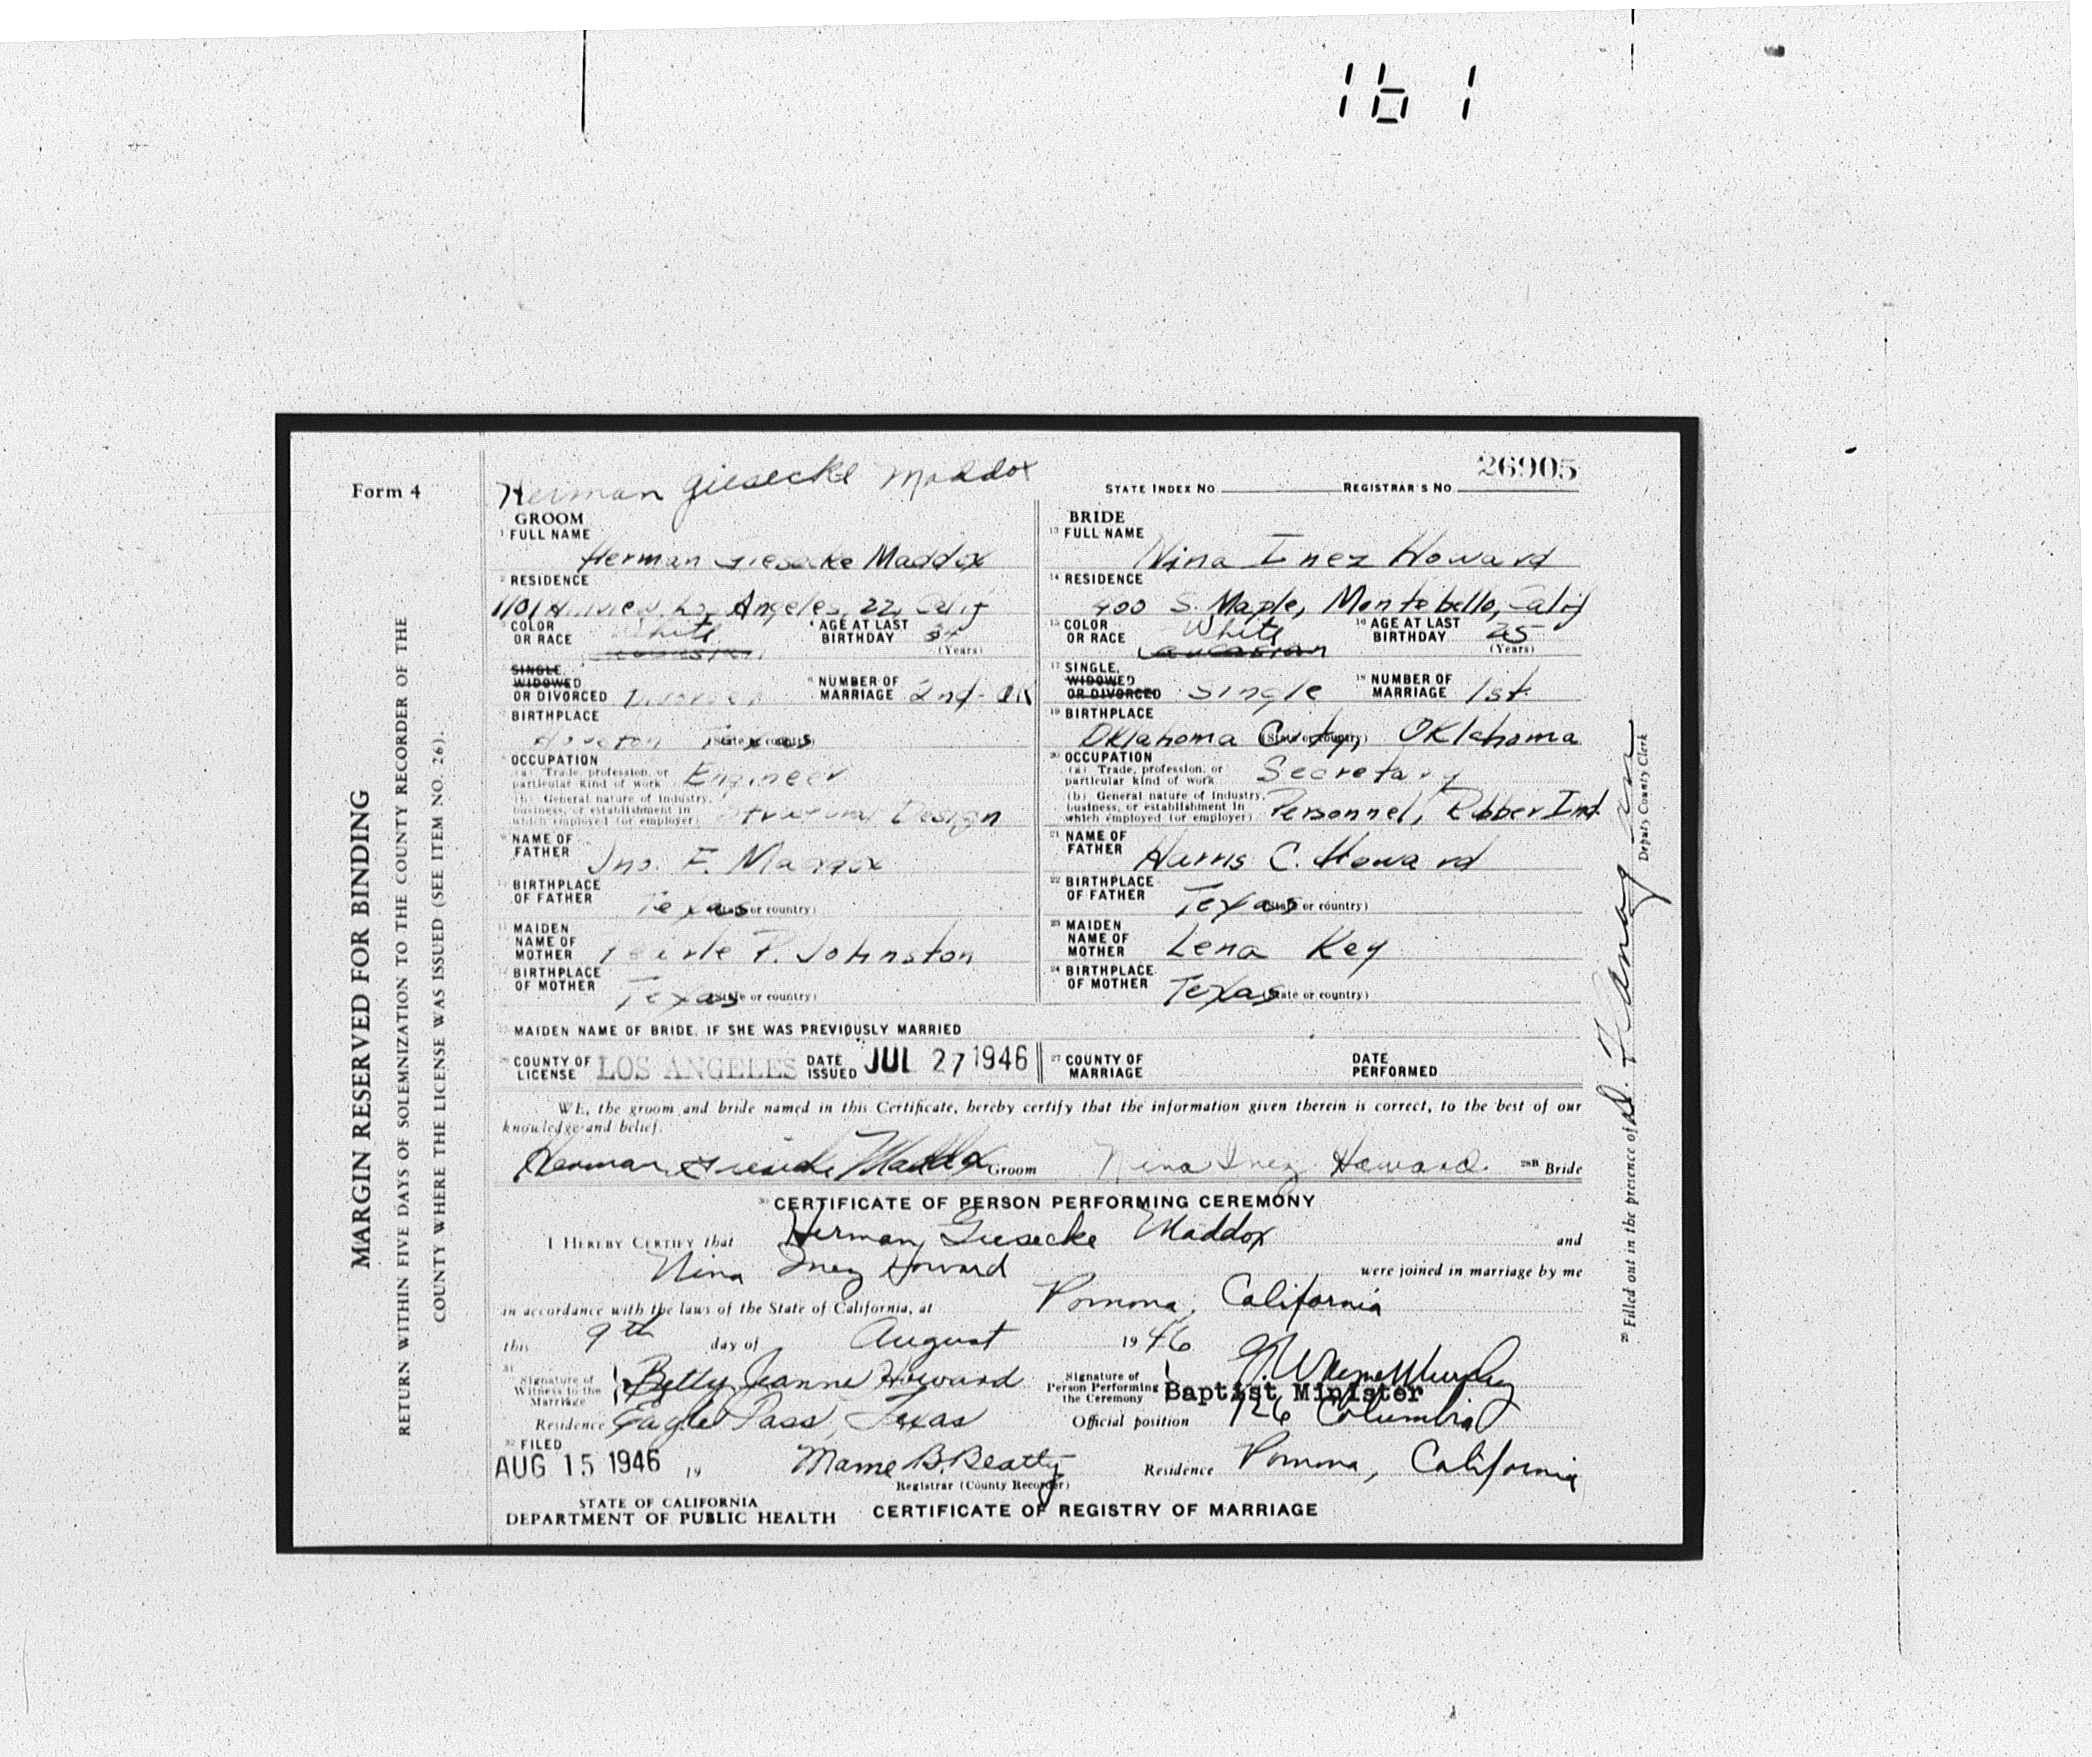 161
Form 4
Herman Giesecke Maddox
26905
STATE INDEX NO. REGISTRAR'S NO.
GROOM
1 FULL NAME
Herman Giesecke Maddox
2 RESIDENCE
Los Angeles, 22, Calif
COLOR OR RACE White
AGE AT LAST BIRTHDAY 34 (Years)
SINGLE, WIDOWED OR DIVORCED Divorced
NUMBER OF MARRIAGE 2nd - OK
BIRTHPLACE
Houston Texas (State or country)
OCCUPATION
(a) Trade, profession, or particular kind of work Engineer
(b) General nature of industry, business, or establishment in which employed (or employer) Structural Design
NAME OF FATHER Jno. F. Maddox
BIRTHPLACE OF FATHER Texas (State or country)
MAIDEN NAME OF MOTHER Pearle P. Johnston
BIRTHPLACE OF MOTHER Texas (State or country)
BRIDE
13 FULL NAME
Nina Inez Howard
14 RESIDENCE
400 S. Maple, Montebello, Calif
15 COLOR OR RACE White
Caucasian
16 AGE AT LAST BIRTHDAY 25 (Years)
17 SINGLE, WIDOWED OR DIVORCED Single
18 NUMBER OF MARRIAGE 1st
19 BIRTHPLACE
Oklahoma City, Oklahoma (State or country)
20 OCCUPATION
(a) Trade, profession, or particular kind of work Secretary
(b) General nature of industry, business, or establishment in which employed (or employer) Personnel, Rubber Ind.
21 NAME OF FATHER Harris C. Howard
22 BIRTHPLACE OF FATHER Texas (State or country)
23 MAIDEN NAME OF MOTHER Lena Key
24 BIRTHPLACE OF MOTHER Texas (State or country)
MAIDEN NAME OF BRIDE, IF SHE WAS PREVIOUSLY MARRIED
26 COUNTY OF LICENSE LOS ANGELES DATE ISSUED JUL 27 1946
27 COUNTY OF MARRIAGE DATE PERFORMED
WE, the groom and bride named in this Certificate, hereby certify that the information given therein is correct, to the best of our
knowledge and belief.
Herman Giesecke Maddox Groom Nina Inez Howard 28B Bride
30 CERTIFICATE OF PERSON PERFORMING CEREMONY
I HEREBY CERTIFY that Herman Giesecke Maddox and
Nina Inez Howard were joined in marriage by me
in accordance with the laws of the State of California, at Pomona, California
this 9th day of August 1946
31 Signature of Witness to the Marriage Betty Jeanne Howard
Residence Eagle Pass, Texas
Signature of Person Performing the Ceremony Wayne Murphy
Baptist Minister
Official position 726 Columbia
Residence Pomona, California
32 FILED
AUG 15 1946 19
Mame B. Beatty
Registrar (County Recorder)
STATE OF CALIFORNIA
DEPARTMENT OF PUBLIC HEALTH
CERTIFICATE OF REGISTRY OF MARRIAGE
MARGIN RESERVED FOR BINDING
RETURN WITHIN FIVE DAYS OF SOLEMNIZATION TO THE COUNTY RECORDER OF THE
COUNTY WHERE THE LICENSE WAS ISSUED (SEE ITEM NO. 26).
29 Filled out in the presence of D.
Deputy County Clerk